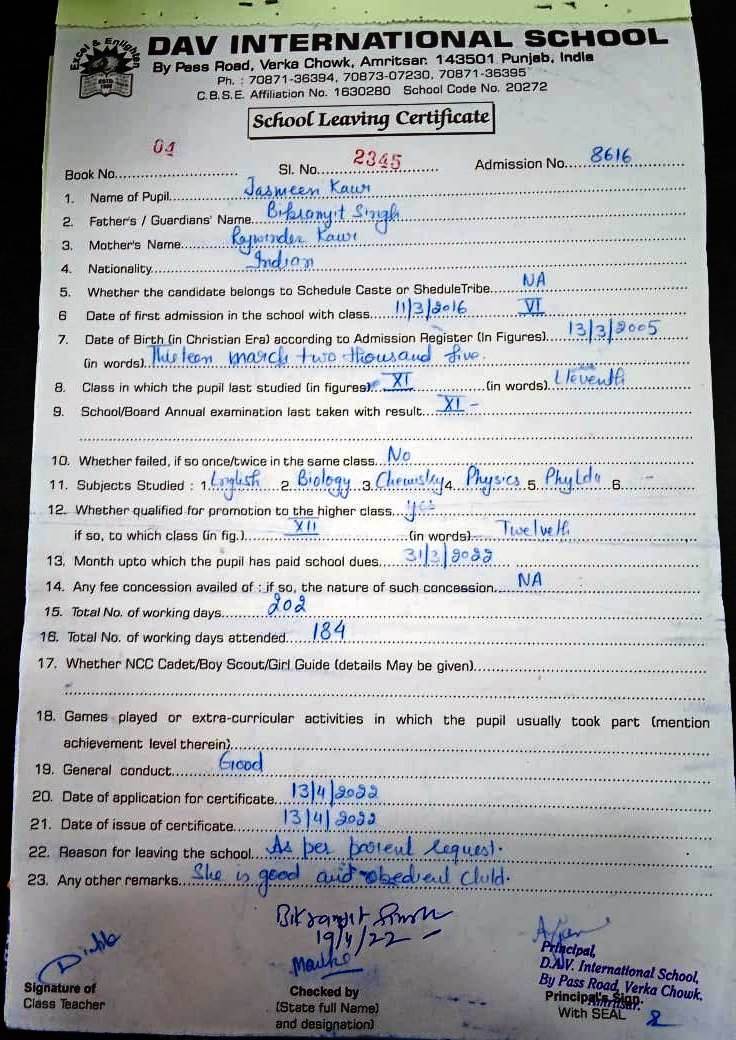 Excel & Enlighten
ESTD.
DAV INTERNATIONAL SCHOOL
By Pass Road, Verka Chowk, Amritsar. 143501 Punjab, India
Ph. : 70871-36394, 70873-07230, 70871-36395
C.B.S.E. Affiliation No. 1630280 School Code No. 20272
School Leaving Certificate
Book No. 04 Sl. No. 2345 Admission No. 8616
1. Name of Pupil Jasmeen Kaur
2. Father's / Guardians' Name Bikramjit Singh
3. Mother's Name Rajwinder Kaur
4. Nationality Indian
5. Whether the candidate belongs to Schedule Caste or SheduleTribe NA
6 Date of first admission in the school with class 11/3/2016 VI
7. Date of Birth (in Christian Era) according to Admission Register (In Figures) 13/3/2005
(in words) Thirteen march two thousand five.
8. Class in which the pupil last studied (in figures) XI (in words) Eleventh
9. School/Board Annual examination last taken with result XI -
10. Whether failed, if so once/twice in the same class No
11. Subjects Studied : 1. English 2. Biology 3. Chemistry 4. Physics 5. 6. -
12. Whether qualified for promotion to the higher class yes
if so, to which class (in fig.) XII (in words) Twelveth
13. Month upto which the pupil has paid school dues 31/3/2022
14. Any fee concession availed of : if so, the nature of such concession NA
15. Total No. of working days 202
16. Total No. of working days attended 184
17. Whether NCC Cadet/Boy Scout/Girl Guide (details May be given)
18. Games played or extra-curricular activities in which the pupil usually took part (mention
achievement level therein)
19. General conduct Good
20. Date of application for certificate 13/4/2022
21. Date of issue of certificate 13/4/2022
22. Reason for leaving the school As per parent request.
23. Any other remarks She is good and obedient child.
Bikramjit Singh
19/4/22
Principal,
D.A.V. International School,
By Pass Road, Verka Chowk,
Amritsar.
Signature of
Class Teacher
Checked by
(State full Name)
and designation)
Principal's Sign.
With SEAL